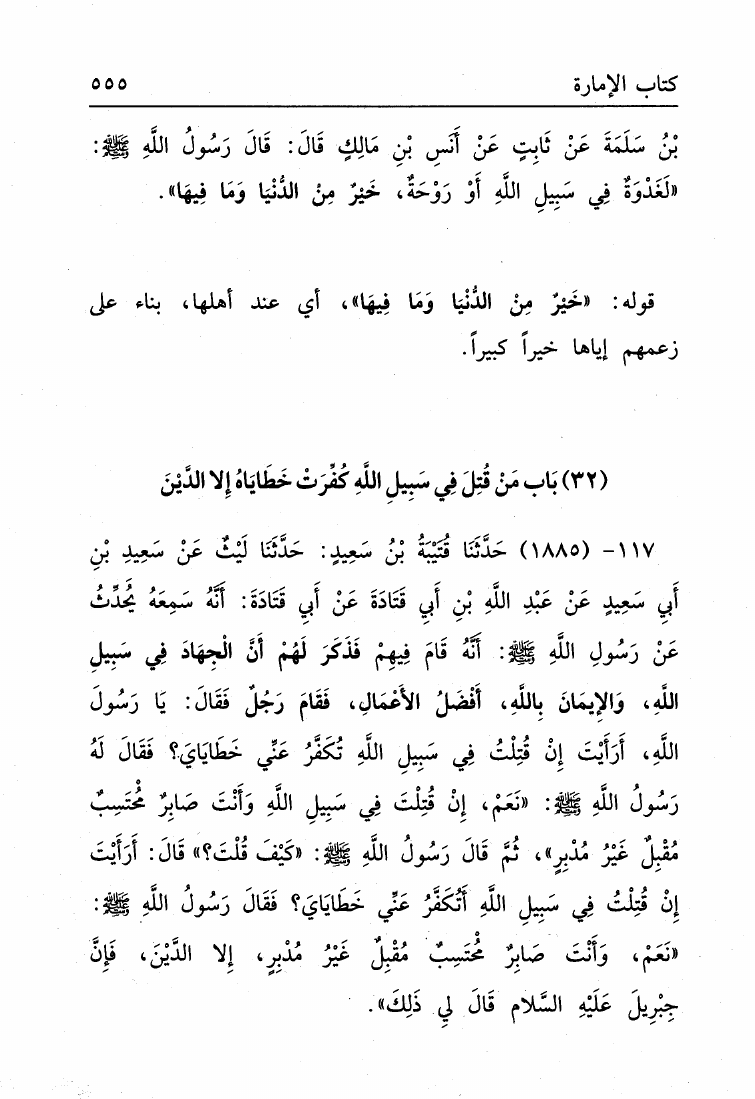 كتاب الإمارة ٥٥٥
بْنُ سَلَمَةَ عَنْ ثَابِتٍ عَنْ أَنَسِ بْنِ مَالِكٍ قَالَ: قَالَ رَسُولُ اللَّهِ ﷺ:
«لَغَدْوَةٌ فِي سَبِيلِ اللَّهِ أَوْ رَوْحَةٌ، خَيْرٌ مِنْ الدُّنْيَا وَمَا فِيهَا».
قوله: «خَيْرٌ مِنْ الدُّنْيَا وَمَا فِيهَا»، أي عند أهلها، بناء على
زعمهم إياها خيراً كبيراً.
(٣٢) بَاب مَنْ قُتِلَ فِي سَبِيلِ اللَّهِ كُفِّرَتْ خَطَايَاهُ إِلا الدَّيْنَ
١١٧- (١٨٨٥) حَدَّثَنَا قُتَيْبَةُ بْنُ سَعِيدٍ: حَدَّثَنَا لَيْثٌ عَنْ سَعِيدِ بْنِ
أَبِي سَعِيدٍ عَنْ عَبْدِ اللَّهِ بْنِ أَبِي قَتَادَةَ عَنْ أَبِي قَتَادَةَ: أَنَّهُ سَمِعَهُ يُحَدِّثُ
عَنْ رَسُولِ اللَّهِ ﷺ: أَنَّهُ قَامَ فِيهِمْ فَذَكَرَ لَهُمْ أَنَّ الْجِهَادَ فِي سَبِيلِ
اللَّهِ، وَالإِيمَانَ بِاللَّهِ، أَفْضَلُ الأَعْمَالِ، فَقَامَ رَجُلٌ فَقَالَ: يَا رَسُولَ
اللَّهِ، أَرَأَيْتَ إِنْ قُتِلْتُ فِي سَبِيلِ اللَّهِ تُكَفَّرُ عَنِّي خَطَايَايَ؟ فَقَالَ لَهُ
رَسُولُ اللَّهِ ﷺ: «نَعَمْ، إِنْ قُتِلْتَ فِي سَبِيلِ اللَّهِ وَأَنْتَ صَابِرٌ مُحْتَسِبٌ
مُقْبِلٌ غَيْرُ مُدْبِرٍ»، ثُمَّ قَالَ رَسُولُ اللَّهِ ﷺ: «كَيْفَ قُلْتَ؟» قَالَ: أَرَأَيْتَ
إِنْ قُتِلْتُ فِي سَبِيلِ اللَّهِ أَتُكَفَّرُ عَنِّي خَطَايَايَ؟ فَقَالَ رَسُولُ اللَّهِ ﷺ:
«نَعَمْ، وَأَنْتَ صَابِرٌ مُحْتَسِبٌ مُقْبِلٌ غَيْرُ مُدْبِرٍ، إِلا الدَّيْنَ، فَإِنَّ
جِبْرِيلَ عَلَيْهِ السَّلام قَالَ لِي ذَلِكَ».